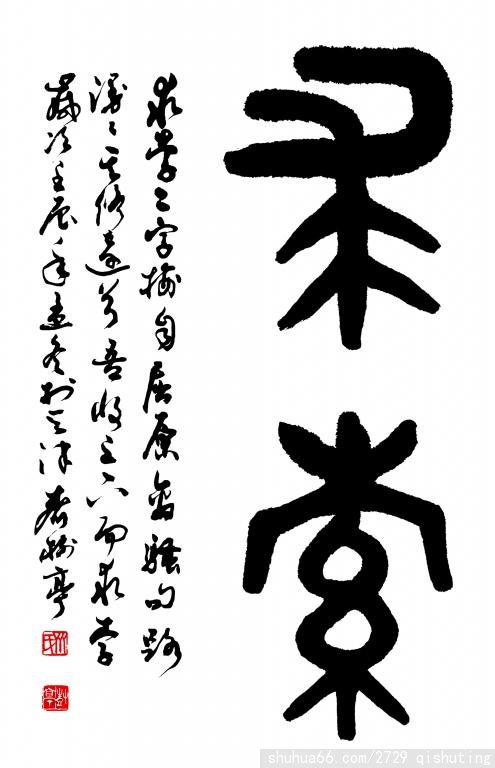 求索
求索二字摘自屈原离骚句路
漫漫其修远兮吾将上下而求索
岁次壬辰年孟冬於天津齐树亭
shuhua66.com/2729 qishuting